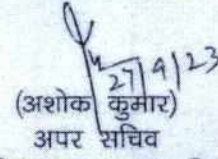 27/9/23
(अशोक कुमार)
अपर सचिव